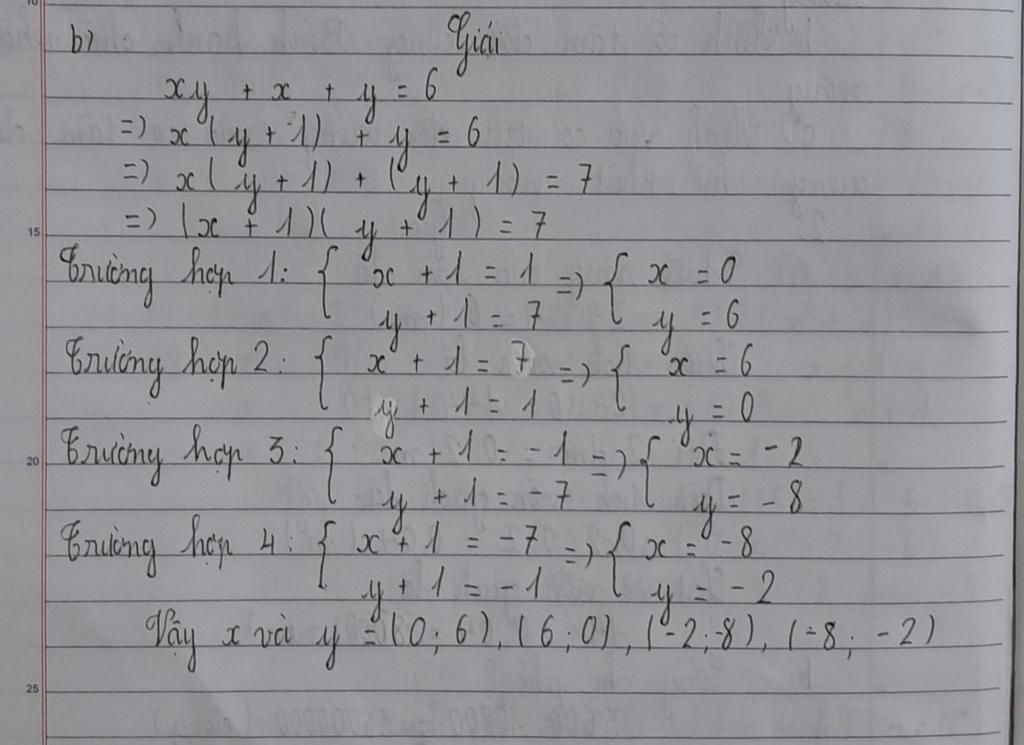 b)
Giải
xy + x + y = 6
=) x(y + 1) + y = 6
=) x(y + 1) + (y + 1) = 7
=) (x + 1)(y + 1) = 7
15
Trường hợp 1: { x + 1 = 1 =) { x = 0
y + 1 = 7 y = 6
Trường hợp 2: { x + 1 = 7 =) { x = 6
y + 1 = 1 y = 0
20
Trường hợp 3: { x + 1 = -1 =) { x = -2
y + 1 = -7 y = -8
Trường hợp 4: { x + 1 = -7 =) { x = -8
y + 1 = -1 y = -2
Vậy x và y = (0; 6), (6; 0), (-2; -8), (-8; -2)
25